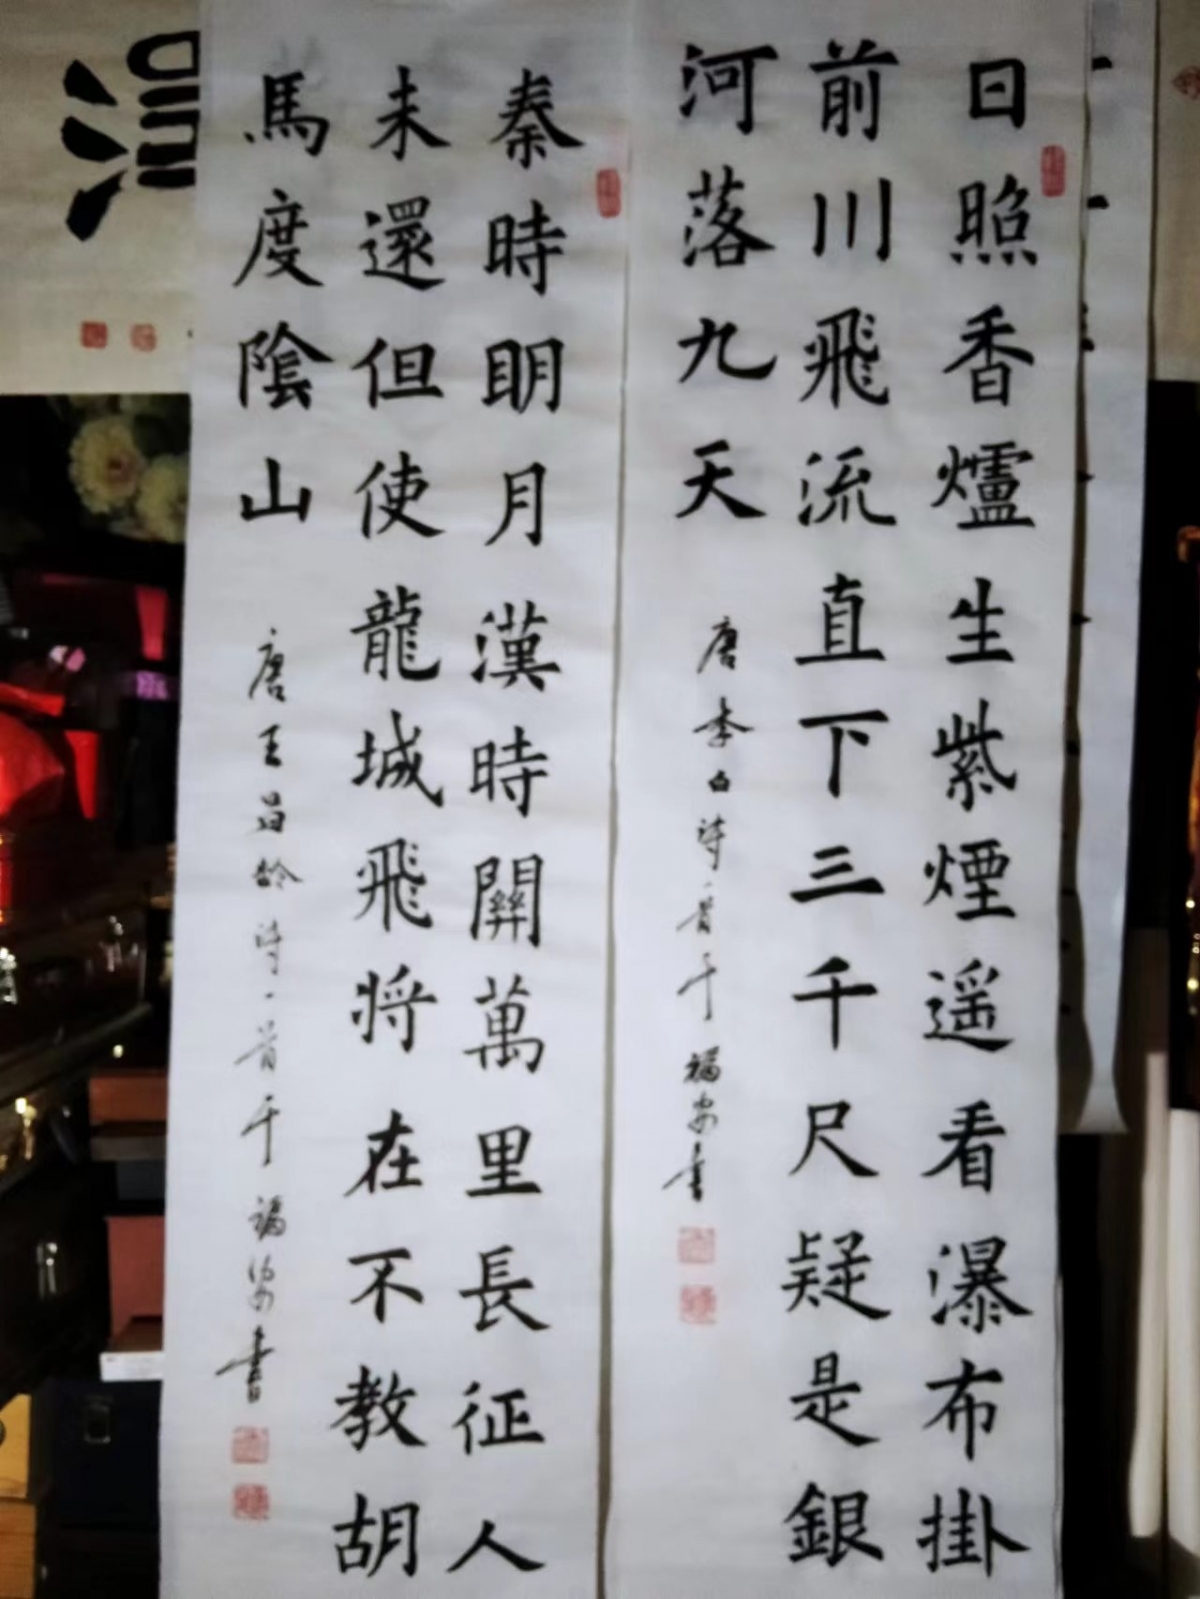 日照香爐生紫煙遥看瀑布掛
前川飛流直下三千尺疑是銀
河落九天
唐李白詩一首于福安書
秦時明月漢時關萬里長征人
未還但使龍城飛将在不教胡
馬度陰山
唐王昌齡詩一首于福安書
溫